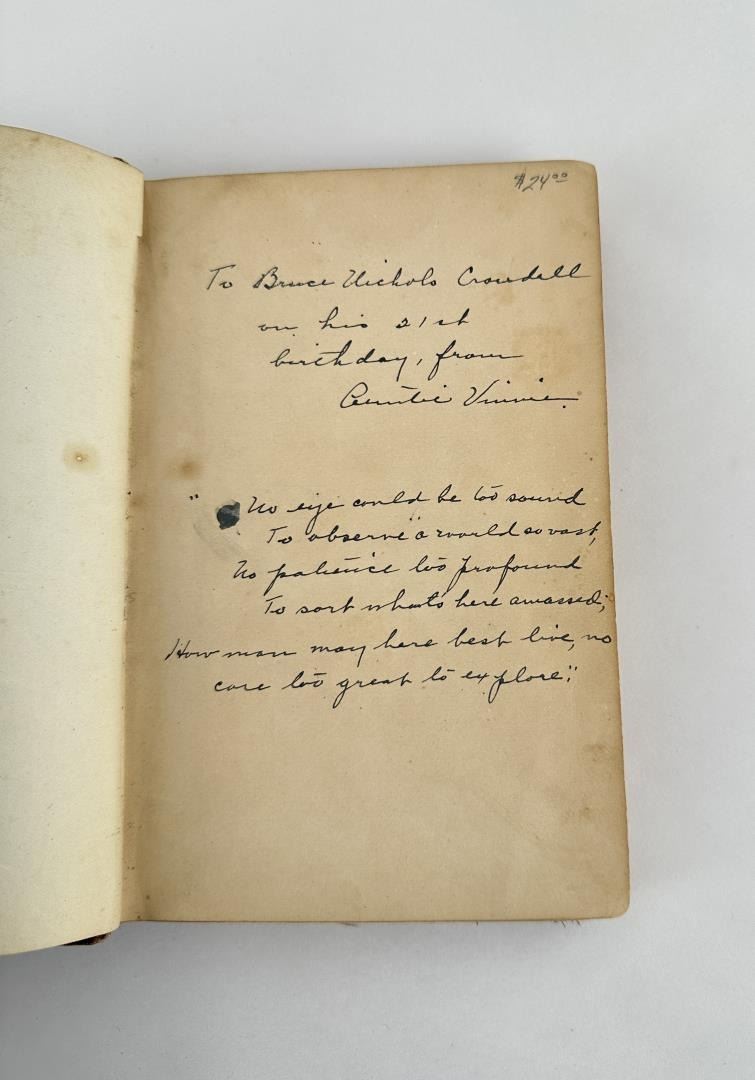 $24.00
To Bruce Nichols Crandall
on his 21st
birthday, from
Auntie Vinnie.
" No eye could be too sound
To observe a world so vast,
No patience too profound
To sort what's here amassed;
How man may here best live, no
care too great to explore."